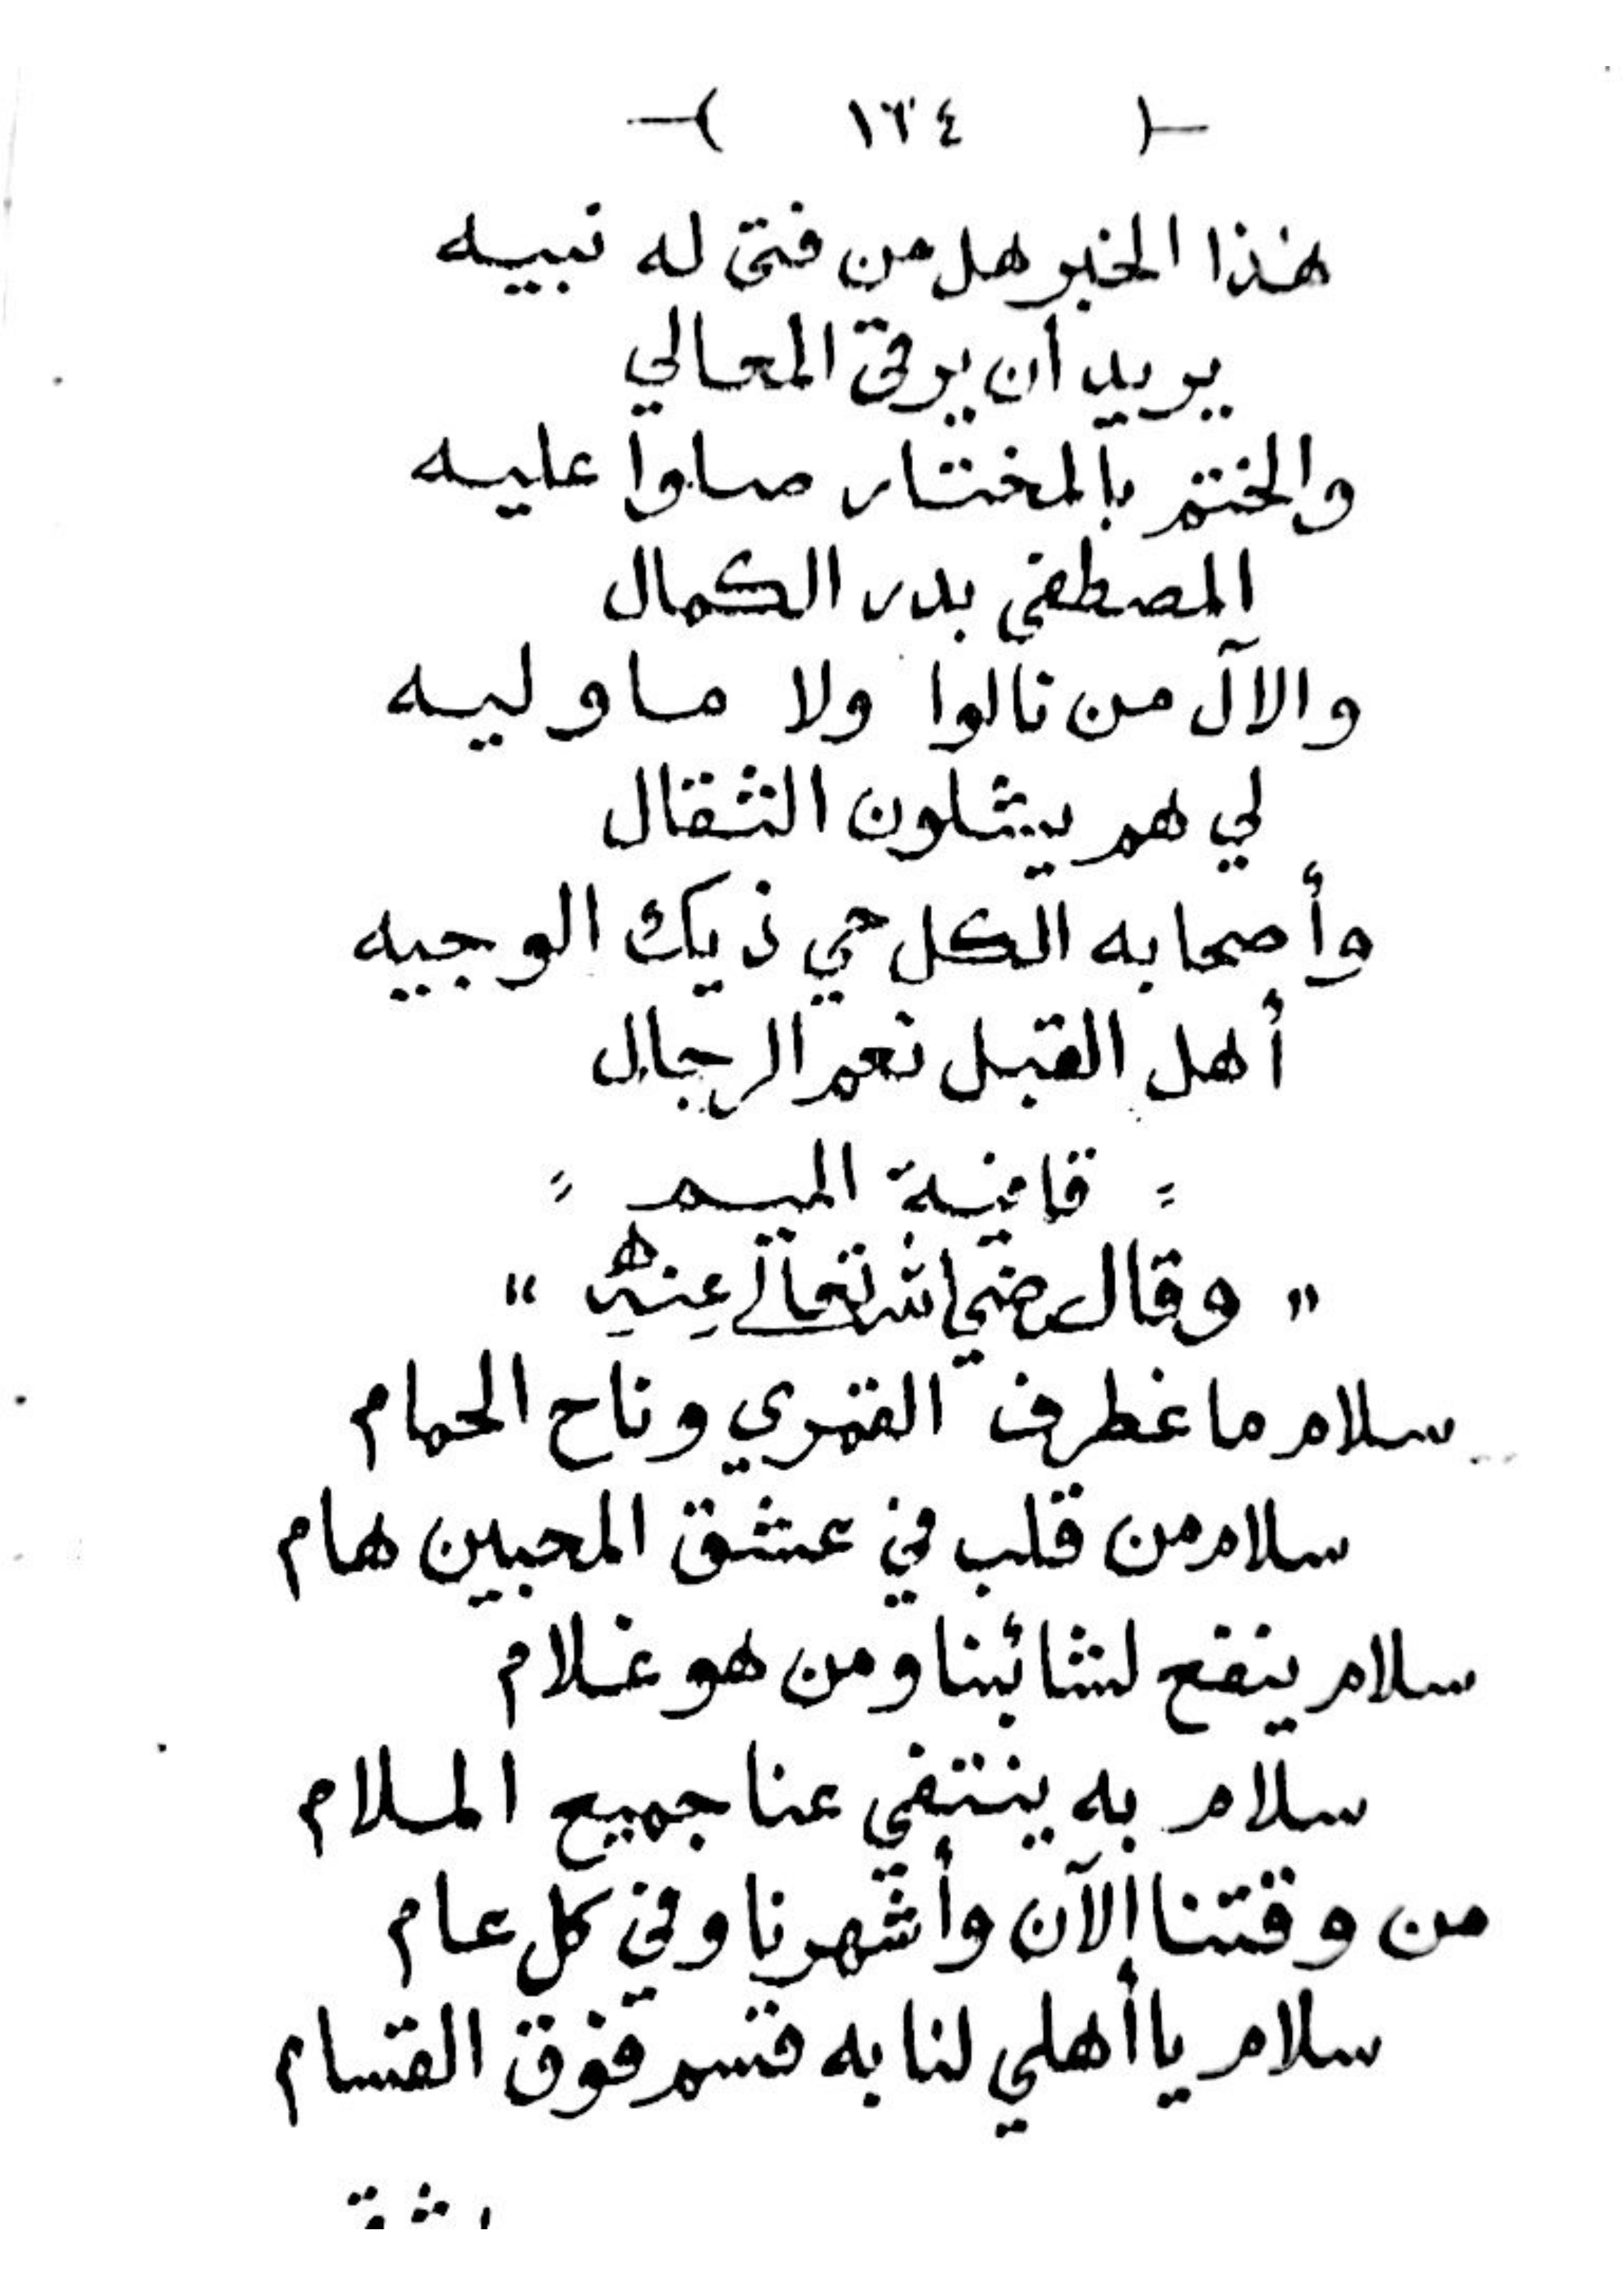 ( ١٦٤ )
هذا الخبر هل من فتى له نبيه
يريد أن يرقى المعالي
والختم بالمختار صلوا عليه
المصطفى بدر الكمال
والآل من نالوا ولا ما وليه
لي هم يشلون الثقال
وأصحابه الكل حي ذيك الوجيه
أهل القبل نعم الرجال
" قافية الميم "
" وقال رضي الله تعالى عنه "
سلام ما غطرف القمري وناح الحمام
سلام من قلب في عشق المحبين هام
سلام ينفع لشائبنا ومن هو غلام
سلام به ينتفي عنا جميع الملام
من وقتنا الآن وأشهرنا وفي كل عام
سلام يا أهلي لنا به قسم فوق القسام